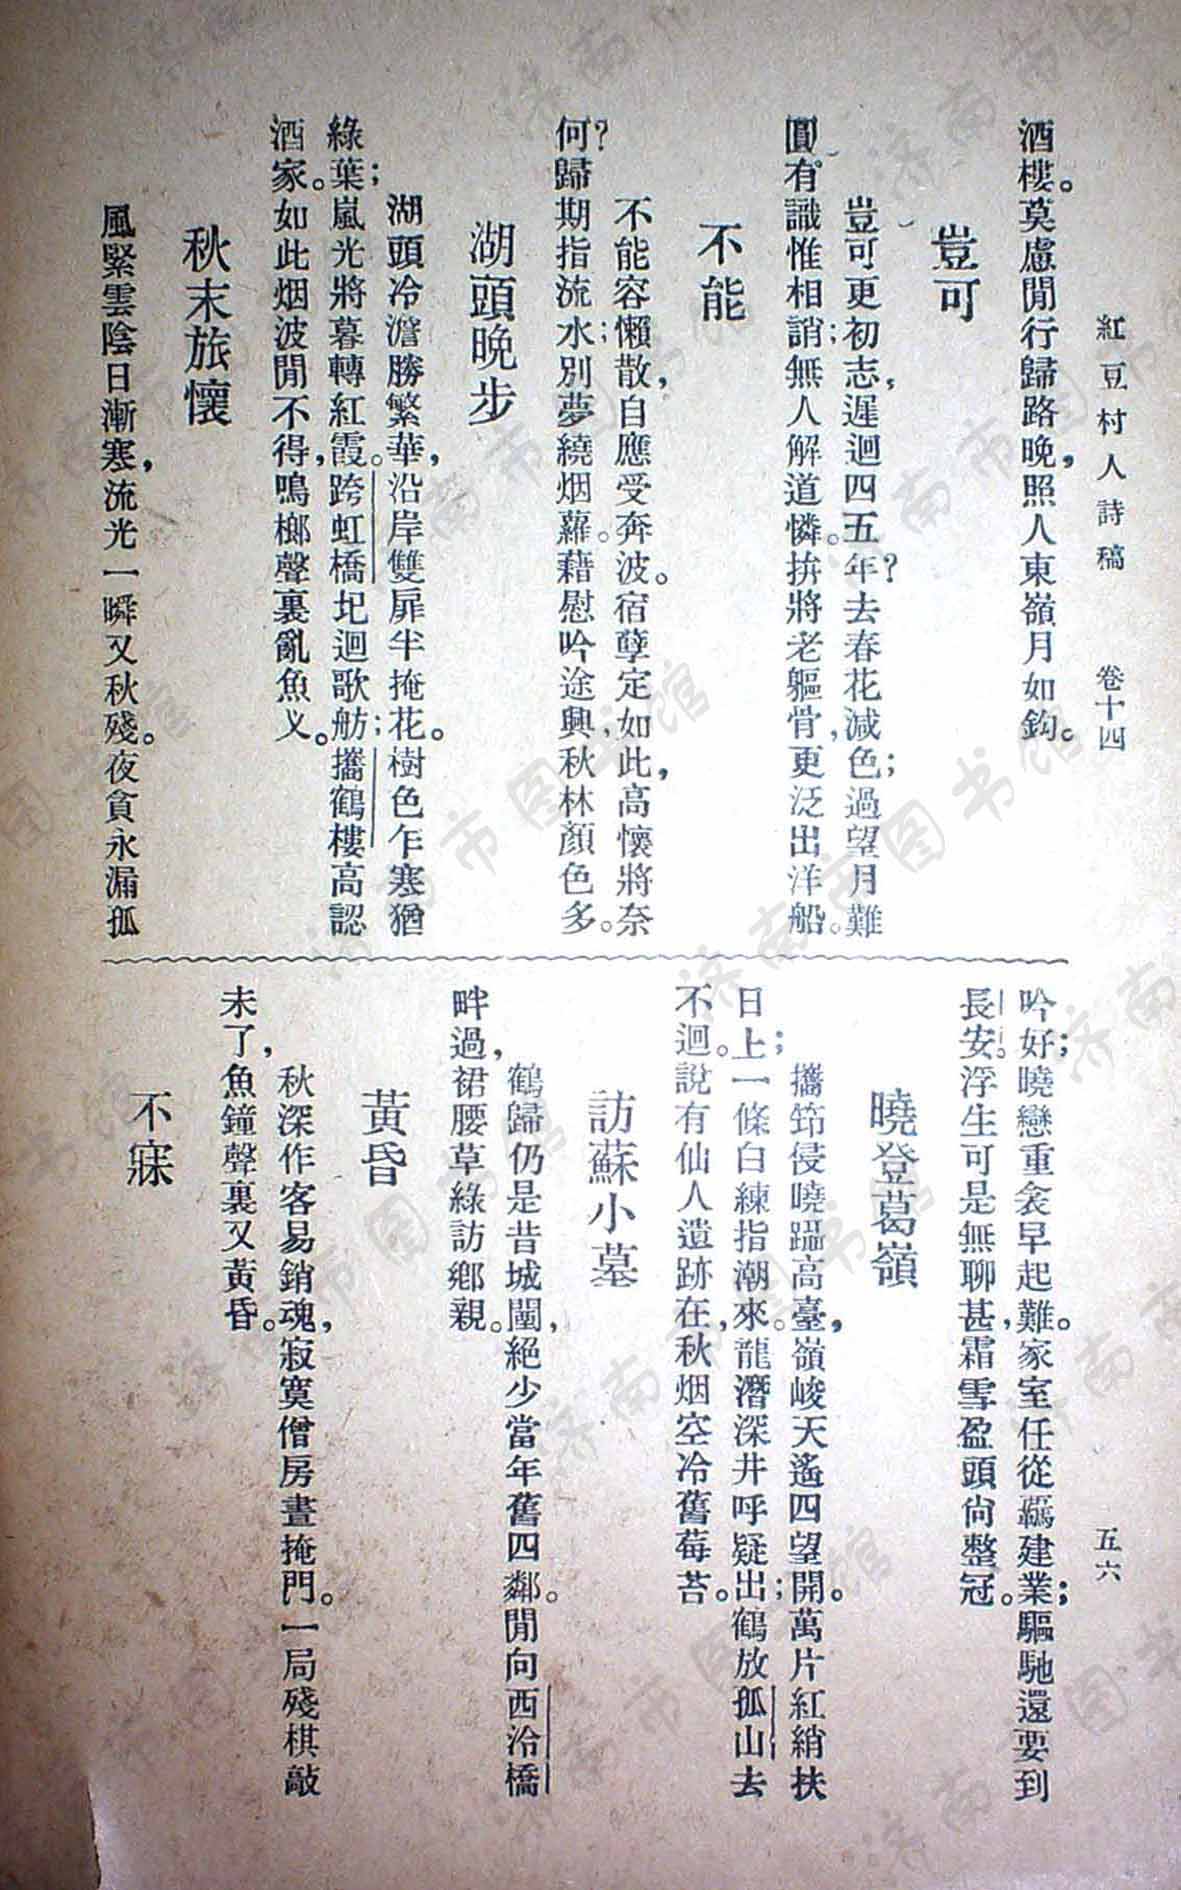 紅豆村人詩稿　卷十四　五六
酒樓。莫慮閒行歸路晚，照人東嶺月如鈎。
豈可
豈可更初志，遲迴四五年？去春花減色；過望月難
圓。有識惟相誚；無人解道憐。拚將老軀骨，更泛出洋船。
不能
不能容懶散，自應受奔波。宿孽定如此，高懷將奈
何？歸期指流水；別夢繞烟蘿。藉慰吟途興，秋林顏色多。
湖頭晚步
湖頭冷澹勝繁華，沿岸雙扉半掩花。樹色乍寒猶
綠葉；嵐光將暮轉紅霞。跨虹橋圯迴歌舫；攜鶴樓高認
酒家。如此烟波閒不得，鳴榔聲裏亂魚义。
秋末旅懷
風緊雲陰日漸寒，流光一瞬又秋殘。夜貪永漏孤
吟好；曉戀重衾早起難。家室任從覊建業；驅馳還要到
長安。浮生可是無聊甚，霜雪盈頭尙整冠。
曉登葛嶺
攜筇侵曉躡高臺，嶺峻天遙四望開。萬片紅綃扶
日上；一條白練指潮來。龍潛深井呼疑出；鶴放孤山去
不迴。說有仙人遺跡在，秋烟空冷舊莓苔。
訪蘇小墓
鶴歸仍是昔城闉，絕少當年舊四鄰。閒向西泠橋
畔過，裙腰草綠訪鄉親。
黃昏
秋深作客易銷魂，寂寞僧房晝掩門。一局殘棋敲
未了，魚鐘聲裏又黃昏。
不寐
济南市图书馆